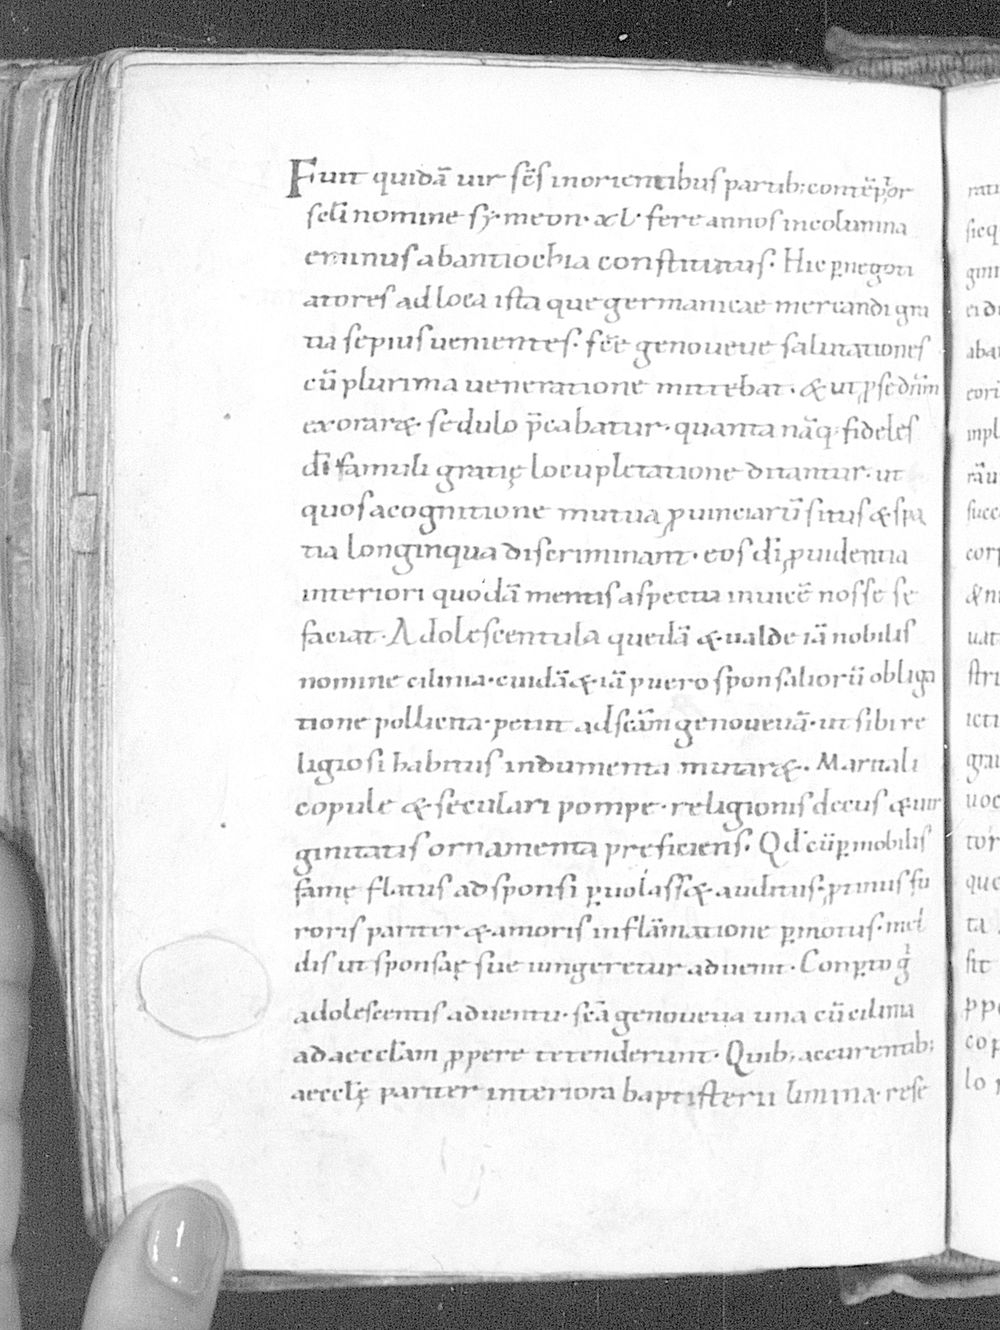 Fuit quidā uir sc̄s inorientibus partib; contēptor
sc̄li nomine sy·meon· xl· fere annos incolumna
eminus abantiochia constitutus. Hic p̱negoti
atores adloca ista que germanicae mercandi gra
tia sepius uenientes· sc̄e genoueue salutationes
cū plurima ueneratione mittebat· & ut ꝓse dn̄m
exorar&· sedulo p̄cabatur· quanta nāq· fideles
dī famuli gratię locupletatione ditantur· ut
quos acognitione mutua ꝓuinciarū situs & spa
tia longinqua discriminant· eos dī ꝓuidentia
interiori quodā mentis aspectu inuicē nosse se
faciat· Adolescentula quedā & ualde iā nobilis
nomine cilinia· cuidā & iā puero sponsaliorū obliga
tione pollicita· petiit adsc̄am genoueuā· ut sibi re
ligiosi habitus indumenta mutar&. Maritali
copule & seculari pompe· religionis decus & uir
ginitatis ornamenta preficiens. Qd' cū p̱mobilis
famę flatus ad sponsi p̱uolass& auditus; ꝓtinus fu
roris pariter & amoris inflāmatione p̱motus· mel
dis ut sponsaę sue iungeretur aduenit· Conp̱to g̊
adolescentis aduentu· sc̄a genoueua una cū cilinia
adaecclam ꝓpere tetenderunt· Quib; accurrentib;
aecclę pariter interiora baptisterii limina· rese